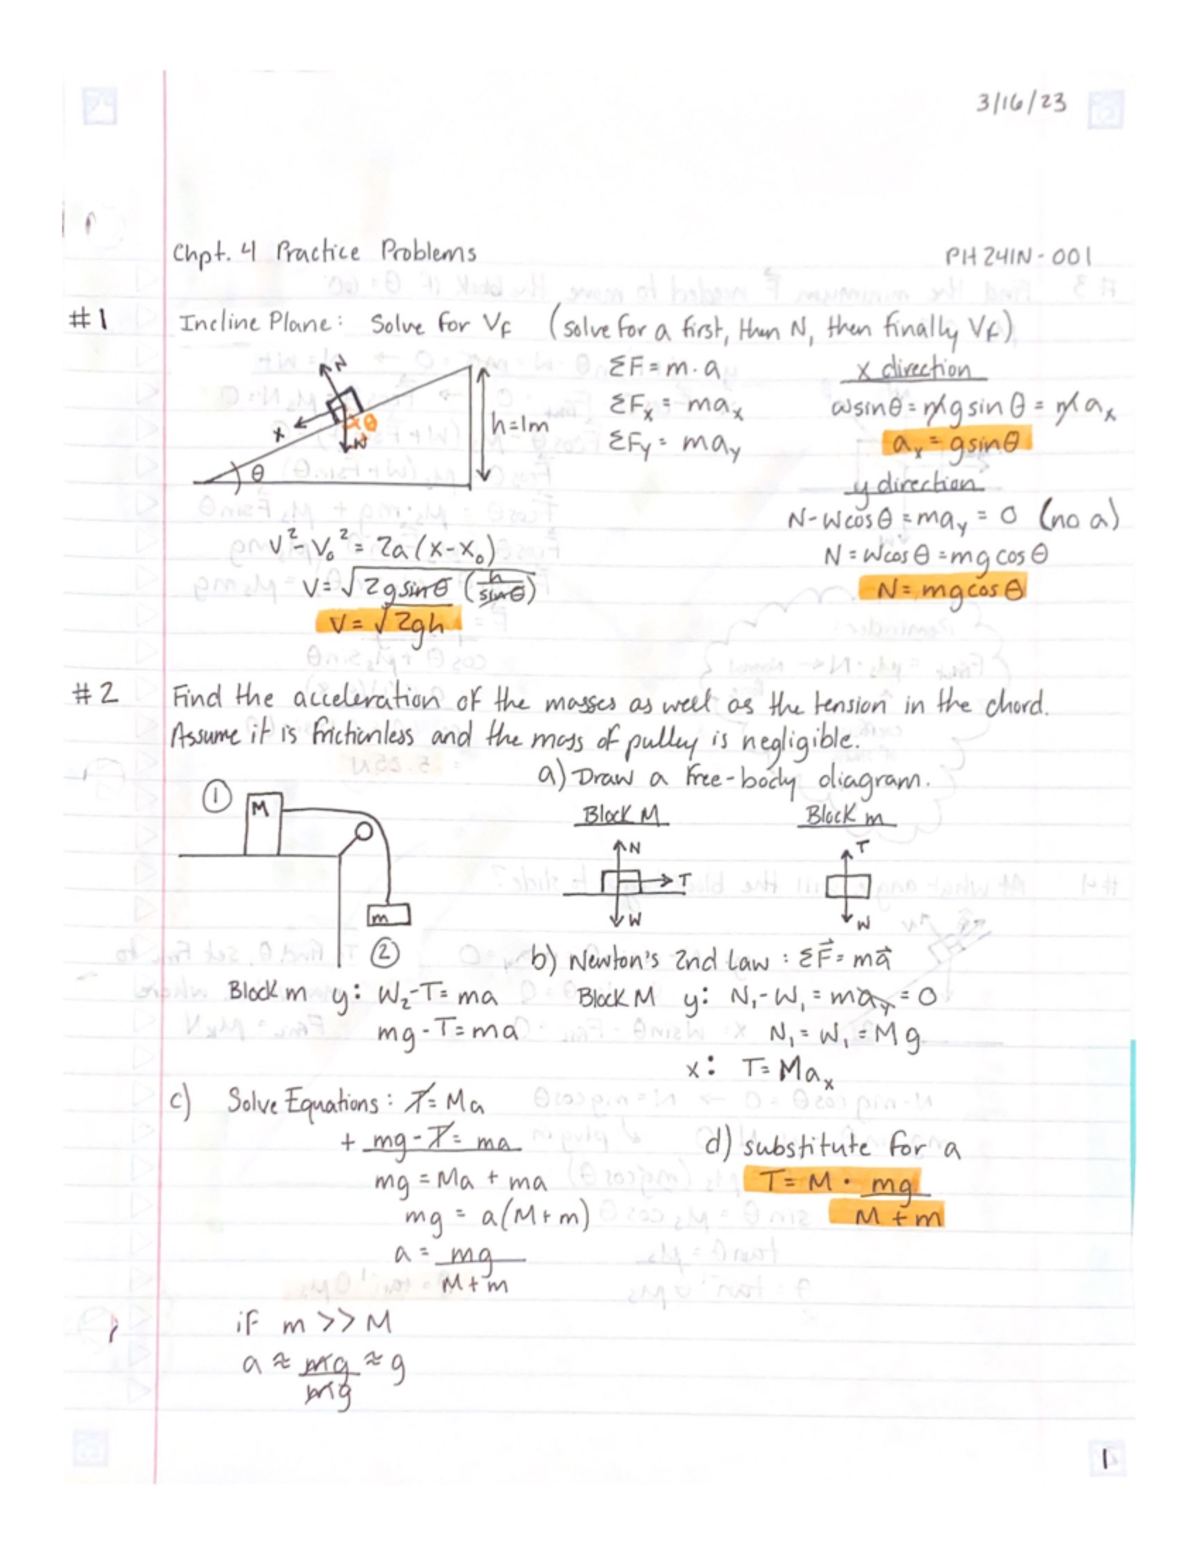 3/16/23
Chpt. 4 Practice Problems PH 241N-001
#1 Incline Plane: Solve for Vf (solve for a first, then N, then finally Vf)
N
x
θ
θ
h=1m
ΣF = m·a
ΣFx = max
ΣFy = may
x direction
wsinθ = mgsinθ = max
ax = gsinθ
y direction
N-Wcosθ = may = 0 (no a)
N = Wcosθ = mg cosθ
N = mgcosθ
V²-V₀² = 2a(x-x₀)
V = √2gsinθ (h/sinθ)
V = √2gh
#2 Find the acceleration of the masses as well as the tension in the chord.
Assume it is frictionless and the mass of pulley is negligible.
① M
m
②
a) Draw a free-body diagram.
Block M Block m
N T W
T W
b) Newton's 2nd Law: ΣF⃗ = ma⃗
Block m y: W₂-T = ma
mg-T = ma
Block M y: N₁-W₁ = may = 0
N₁ = W₁ = Mg
x: T = Max
c) Solve Equations: T = Ma
+ mg-T = ma
mg = Ma + ma
mg = a(M+m)
a = mg/M+m
d) substitute for a
T = M · mg/M+m
if m >> M
a ≈ mg/mg ≈ g
1